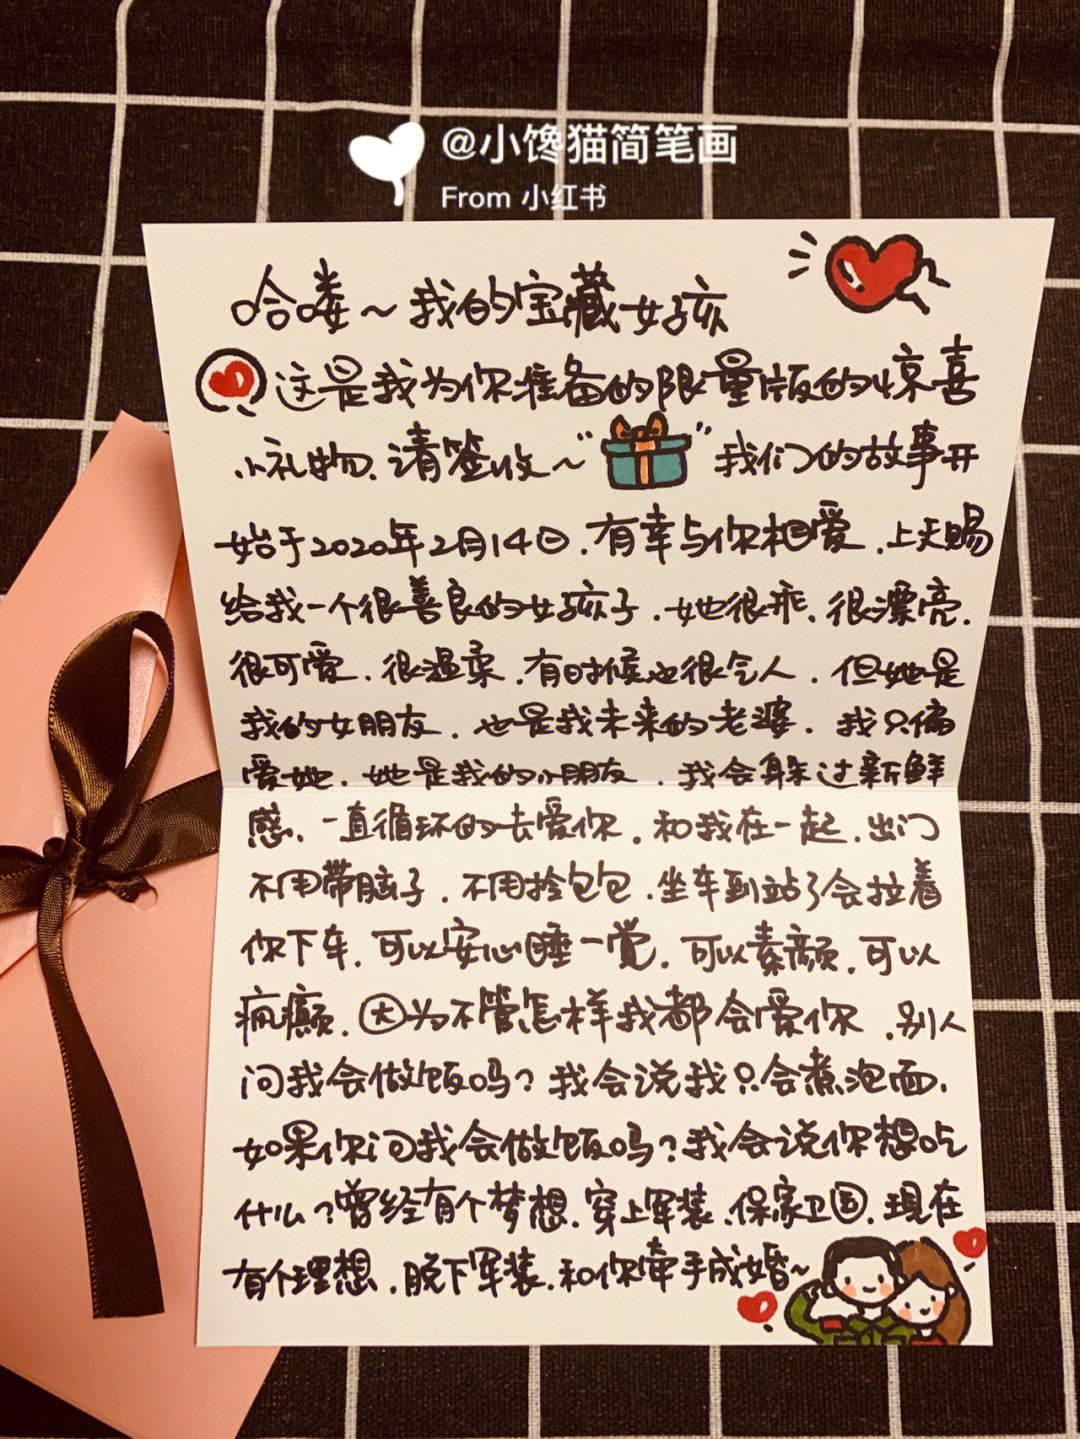 @小馋猫简笔画
From 小红书
哈喽～我的宝藏女孩
这是我为你准备的限量版的惊喜
小礼物、请签收～“ ”我们的故事开
始于2020年2月14日.有幸与你相爱.上天赐
给我一个很善良的女孩子.她很乖、很漂亮.
很可爱.很温柔.有时候也很气人.但她是
我的女朋友.也是我未来的老婆.我只偏
爱她.她是我的小朋友.我会躲过新鲜
感、一直循环的去爱你.和我在一起.出门
不用带脑子.不用拎包包.坐车到站了会拉着
你下车.可以安心睡一觉.可以素颜.可以
疯癫.因为不管怎样我都会爱你.别人
问我会做饭吗?我会说我只会煮泡面.
如果你问我会做饭吗?我会说你想吃
什么?曾经有个梦想.穿上军装.保家卫国.现在
有个理想.脱下军装.和你牵手成婚～